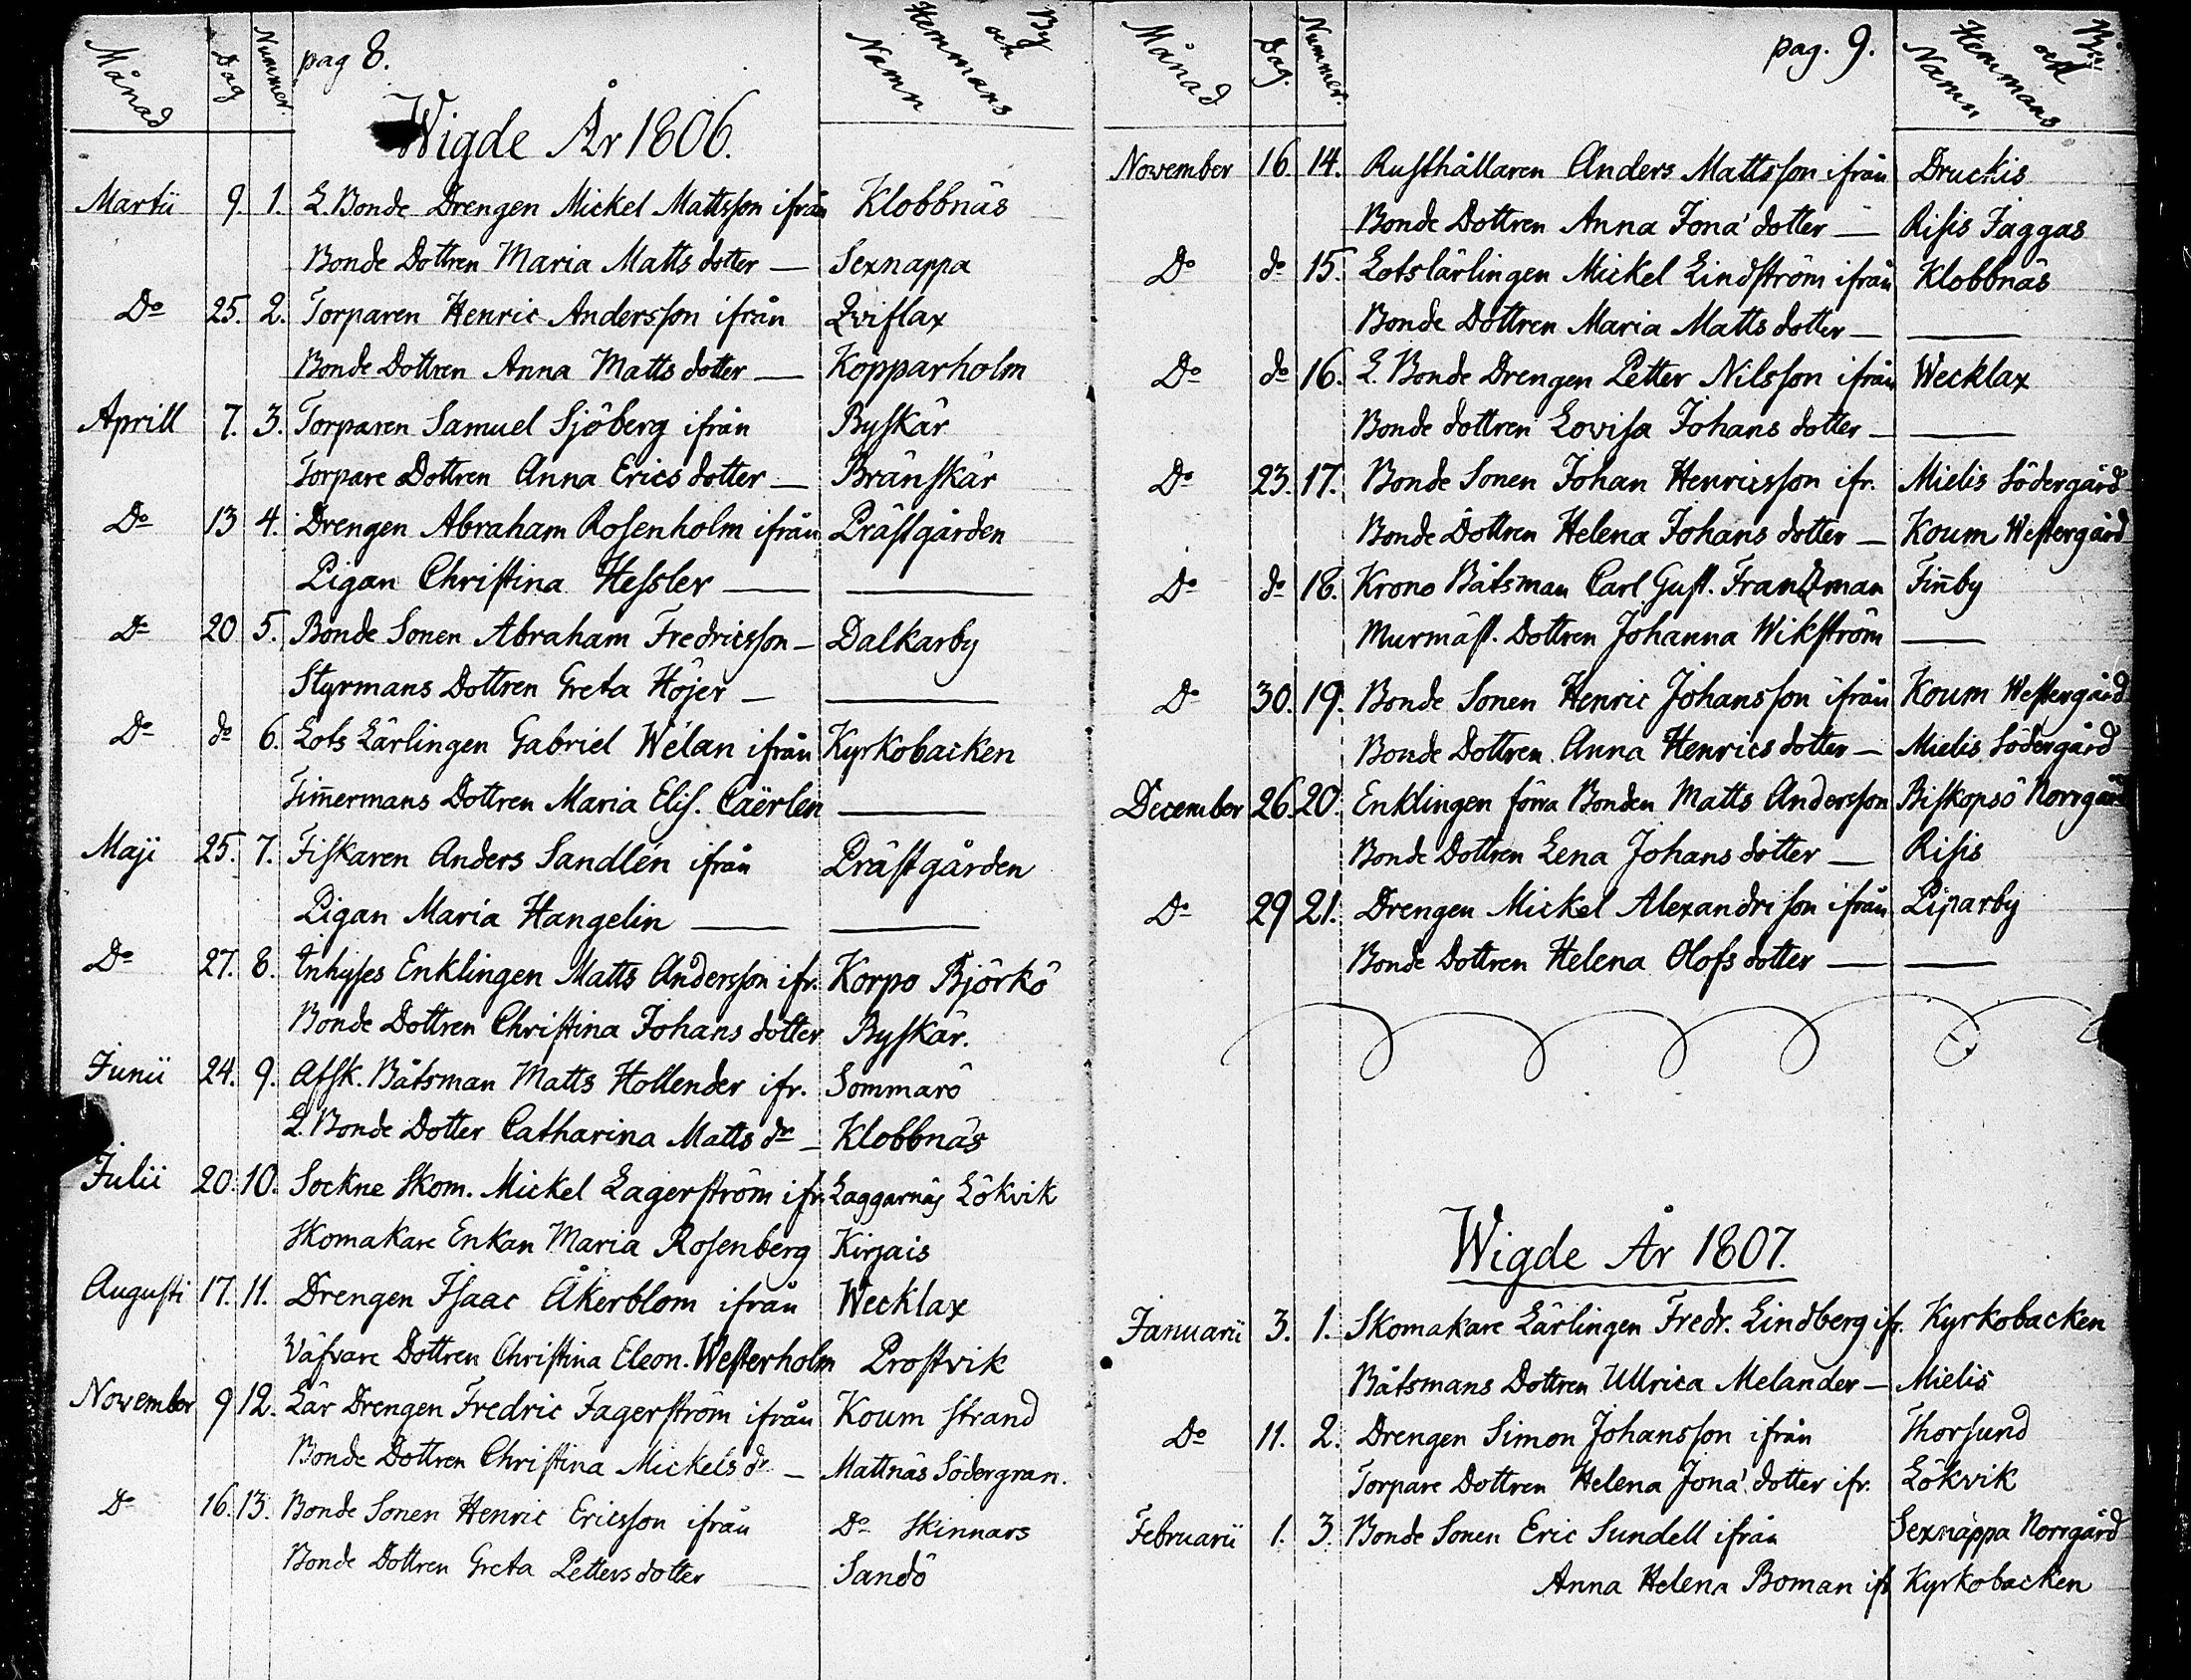 Månad Dag Nummer. pag 8. By och Hemmans Namn
Wigde År 1806.
Martii 9. 1. L. Bonde Drengen Mickel Mattsson ifrån Klobbnäs
Bonde Dottren Maria Matts dotter — Sexnappa
Do 25. 2. Torparen Henric Andersson ifrån Qviflax
Bonde Dottren Anna Matts dotter — Kopparholm
Aprill 7. 3. Torparen Samuel Sjöberg ifrån Byskär
Torpare Dottren Anna Erics dotter — Bränskär
Do 13 4. Drengen Abraham Rosenholm ifrån Prästgården
Pigan Christina Hessler — —
Do 20 5. Bonde Sonen Abraham Fredricsson — Dalkarby
Styrmans Dottren Greta Höjer — —
Do do 6. Lots Lärlingen Gabriel Welan ifrån Kyrkobacken
Tim̄ermans Dottren Maria Elis. Caërlen —
Maji 25. 7. Fiskaren Anders Sandlén ifrån Prästgården
Pigan Maria Hangelin — —
Do 27. 8. Inhyses Enklingen Matts Andersson ifr. Korpo Björkö
Bonde Dottren Christina Johans dotter Byskär.
Junii 24. 9. Afsk. Båtsman Matts Hollender ifr. Sommarö
L. Bonde Dotter Catharina Matts dr — Klobbnäs
Julii 20. 10. Sockne Skom. Mickel Lagerström ifr. Laggarnäs Lökvik
Skomakare Enkan Maria Rosenberg Kirjais
Augusti 17. 11. Drengen Isaac Åkerblom ifrån Wecklax
Väfvare Dottren Christina Eleon. Westerholm Prostvik
November 9 12. Lär Drengen Fredric Fagerström ifrån Koum Strand
Bonde Dottren Christina Mickels dr — Mattnäs Södergran.
Do 16. 13. Bonde Sonen Henric Ericsson ifrån Do Skinnars
Bonde Dottren Greta Petters dotter — Sandö
Månad Dag. Nummer. pag. 9. By och Hemmans Namn
November 16. 14. Rusthållaren Anders Mattsson ifrån Druckis
Bonde Dottren Anna Jona' dotter — Risis Jaggas
Do do 15. Lotslärlingen Mickel Lindström ifrån Klobbnäs
Bonde Dottren Maria Matts dotter — —
Do do 16. L. Bonde Drengen Petter Nilsson ifrån Wecklax
Bonde dottren Lovisa Johans dotter — —
Do 23. 17. Bonde Sonen Johan Henricsson ifr. Mielis Södergård
Bonde Dottren Helena Johans dotter — Koum Westergård
Do do 18. Krono Båtsman Carl Gust. Frantzman Fin̄by
Murmäst. Dottren Johanna Wikström —
Do 30. 19. Bonde Sonen Henric Johansson ifrån Koum Westergård
Bonde Dottren Anna Henrics dotter — Mielis Södergård
December 26. 20. Enklingen förra Bonden Matts Andersson Biskopsö Norrgård
Bonde Dottren Lena Johans dotter — Risis
Do 29 21. Drengen Mickel Alexandrisson ifrån Piparby
Bonde Dottren Helena Olofs dotter — —
Wigde År 1807.
Januarii 3. 1. Skomakare Lärlingen Fredr. Lindberg ifr. Kyrkobacken
Båtsmans Dottren Ullrica Melander — Mielis
Do 11. 2. Drengen Simon Johansson ifrån Thorsund
Torpare Dottren Helena Jona' dotter ifr. Lökvik
Februarii 1. 3. Bonde Sonen Eric Sundell ifrån Sexnappa Norrgård
Anna Helena Boman ifr Kyrkobacken